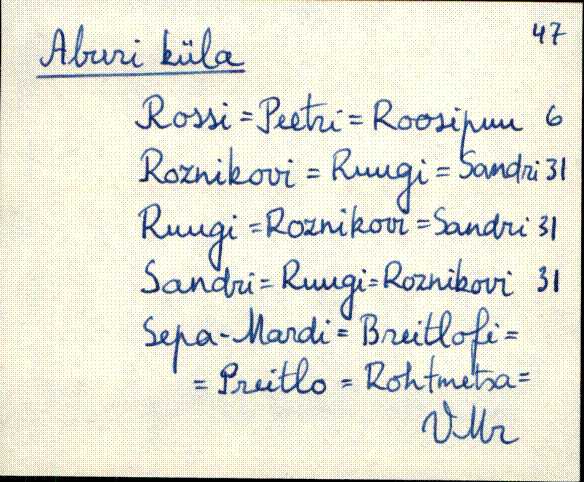 47
Aburi küla
Rossi = Peetri = Roosipuu 6
Roznikovi = Ruugi = Sandri 31
Ruugi = Roznikovi = Sandri 31
Sandri = Ruugi = Roznikovi 31
Sepa-Mardi = Breitlofi =
= Preitlo = Rohtmetsa =
VMr